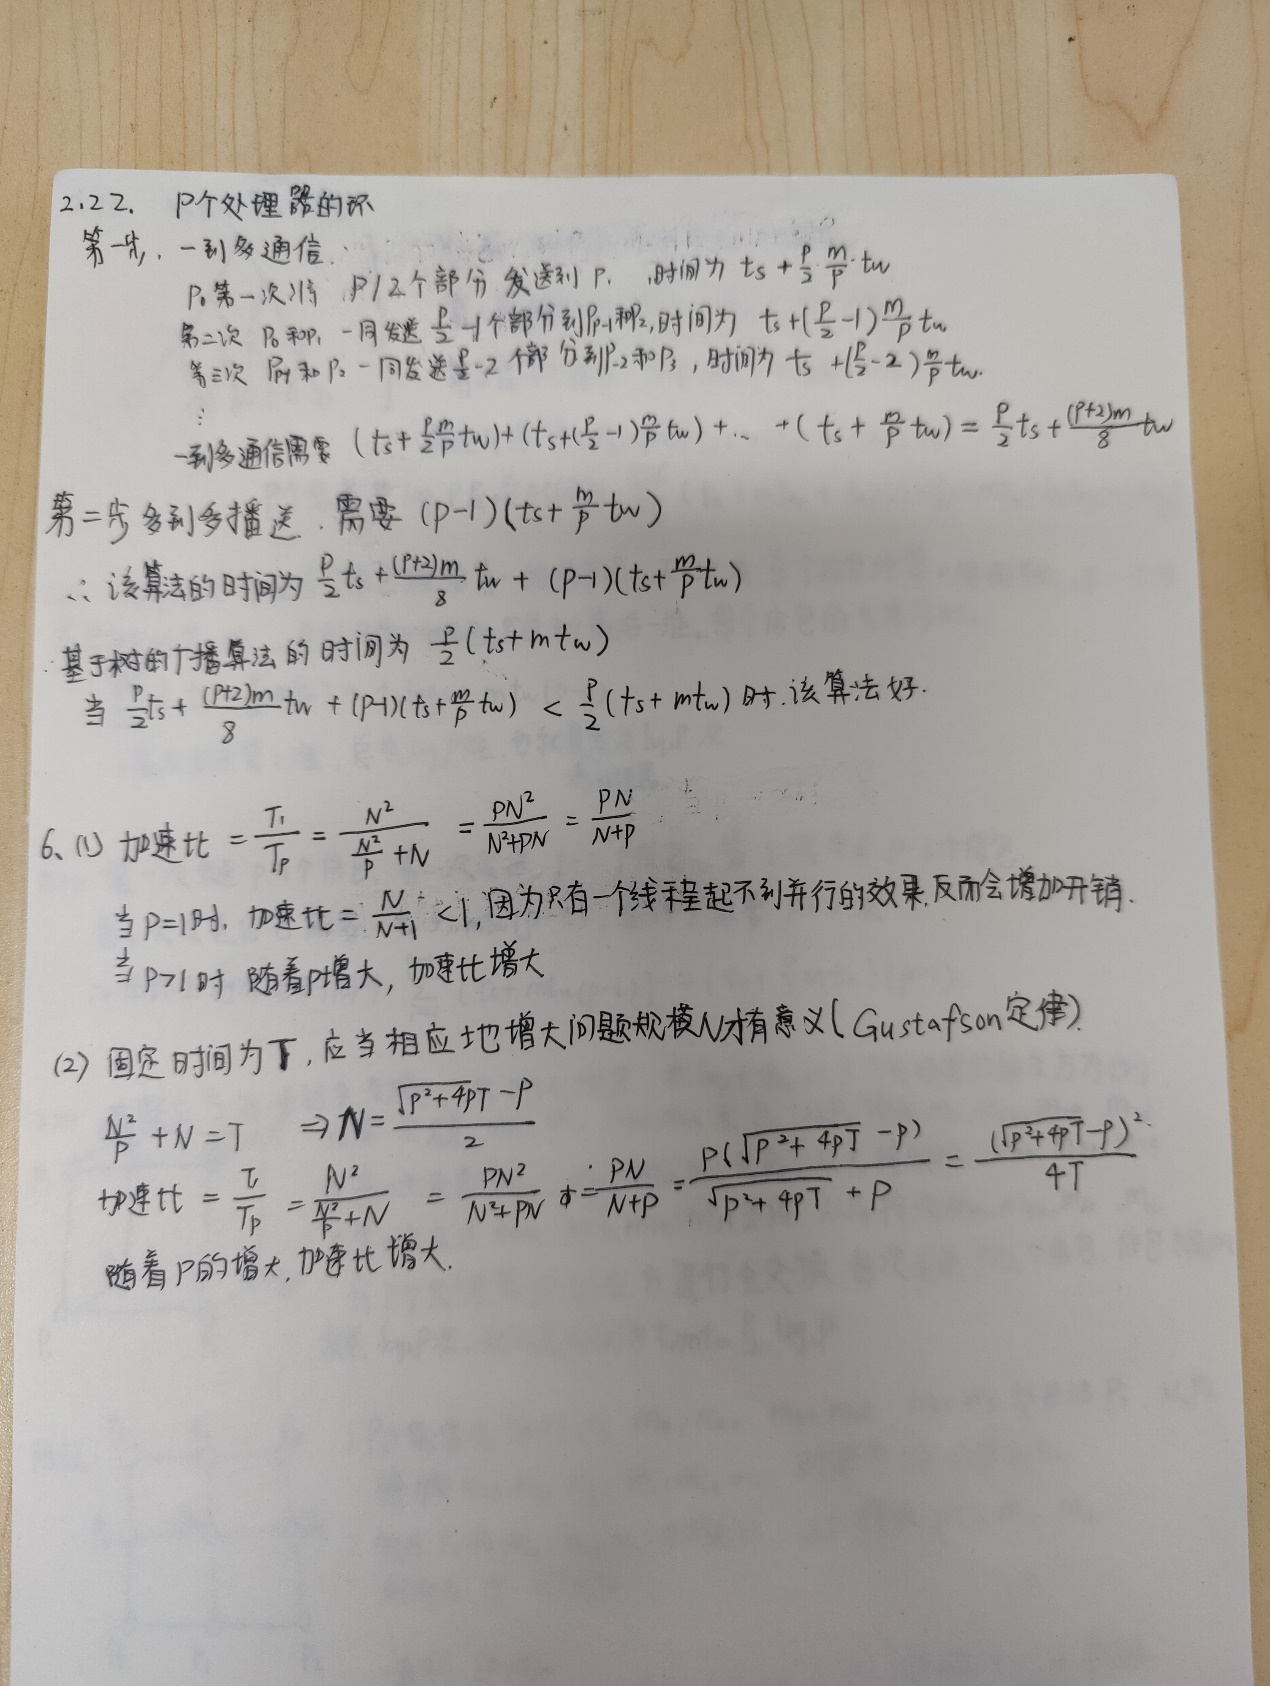 2.22. P个处理器的环
第一步. 一到多通信.
P₀第一次将 P/2个部分发送到P₁, 时间为 ts + P/2·m/P·tw
第二次 P₀和P₁一同发送 P/2-1个部分到Pp-1和P₂,时间为 ts+(P/2-1)m/P tw
第三次 Pp-1和P₂一同发送P/2-2个部分到P-2和P₃, 时间为 ts+(P/2-2)m/P tw.
⋮
一到多通信需要 (ts+P/2 m/P tw)+(ts+(P/2-1)m/P tw)+… +(ts+m/P tw)=P/2 ts+(P+2)m/8 tw
第二步多到多播送. 需要 (P-1)(ts+m/P tw)
∴ 该算法的时间为 P/2 ts+(P+2)m/8 tw+(P-1)(ts+m/P tw)
基于树的广播算法的时间为 P/2(ts+mtw)
当 P/2 ts+(P+2)m/8 tw+(P-1)(ts+m/P tw) < P/2(ts+mtw)时.该算法好.
6、(1) 加速比 = T₁/Tp = N²/(N²/P+N) = PN²/(N²+PN) = PN/(N+P)
当P=1时, 加速比=N/(N+1)<1,因为只有一个线程起不到并行的效果,反而会增加开销.
当P>1时 随着P增大, 加速比增大
(2) 固定时间为T, 应当相应地增大问题规模N才有意义(Gustafson定律).
N²/P+N=T ⇒N=(√(P²+4PT)-P)/2
加速比 = T₁/Tp = N²/(N²/P+N) = PN²/(N²+PN) = PN/(N+P) = P(√(P²+4PT)-P)/(√(P²+4PT)+P) = (√(P²+4PT)-P)²/4T
随着P的增大,加速比增大.